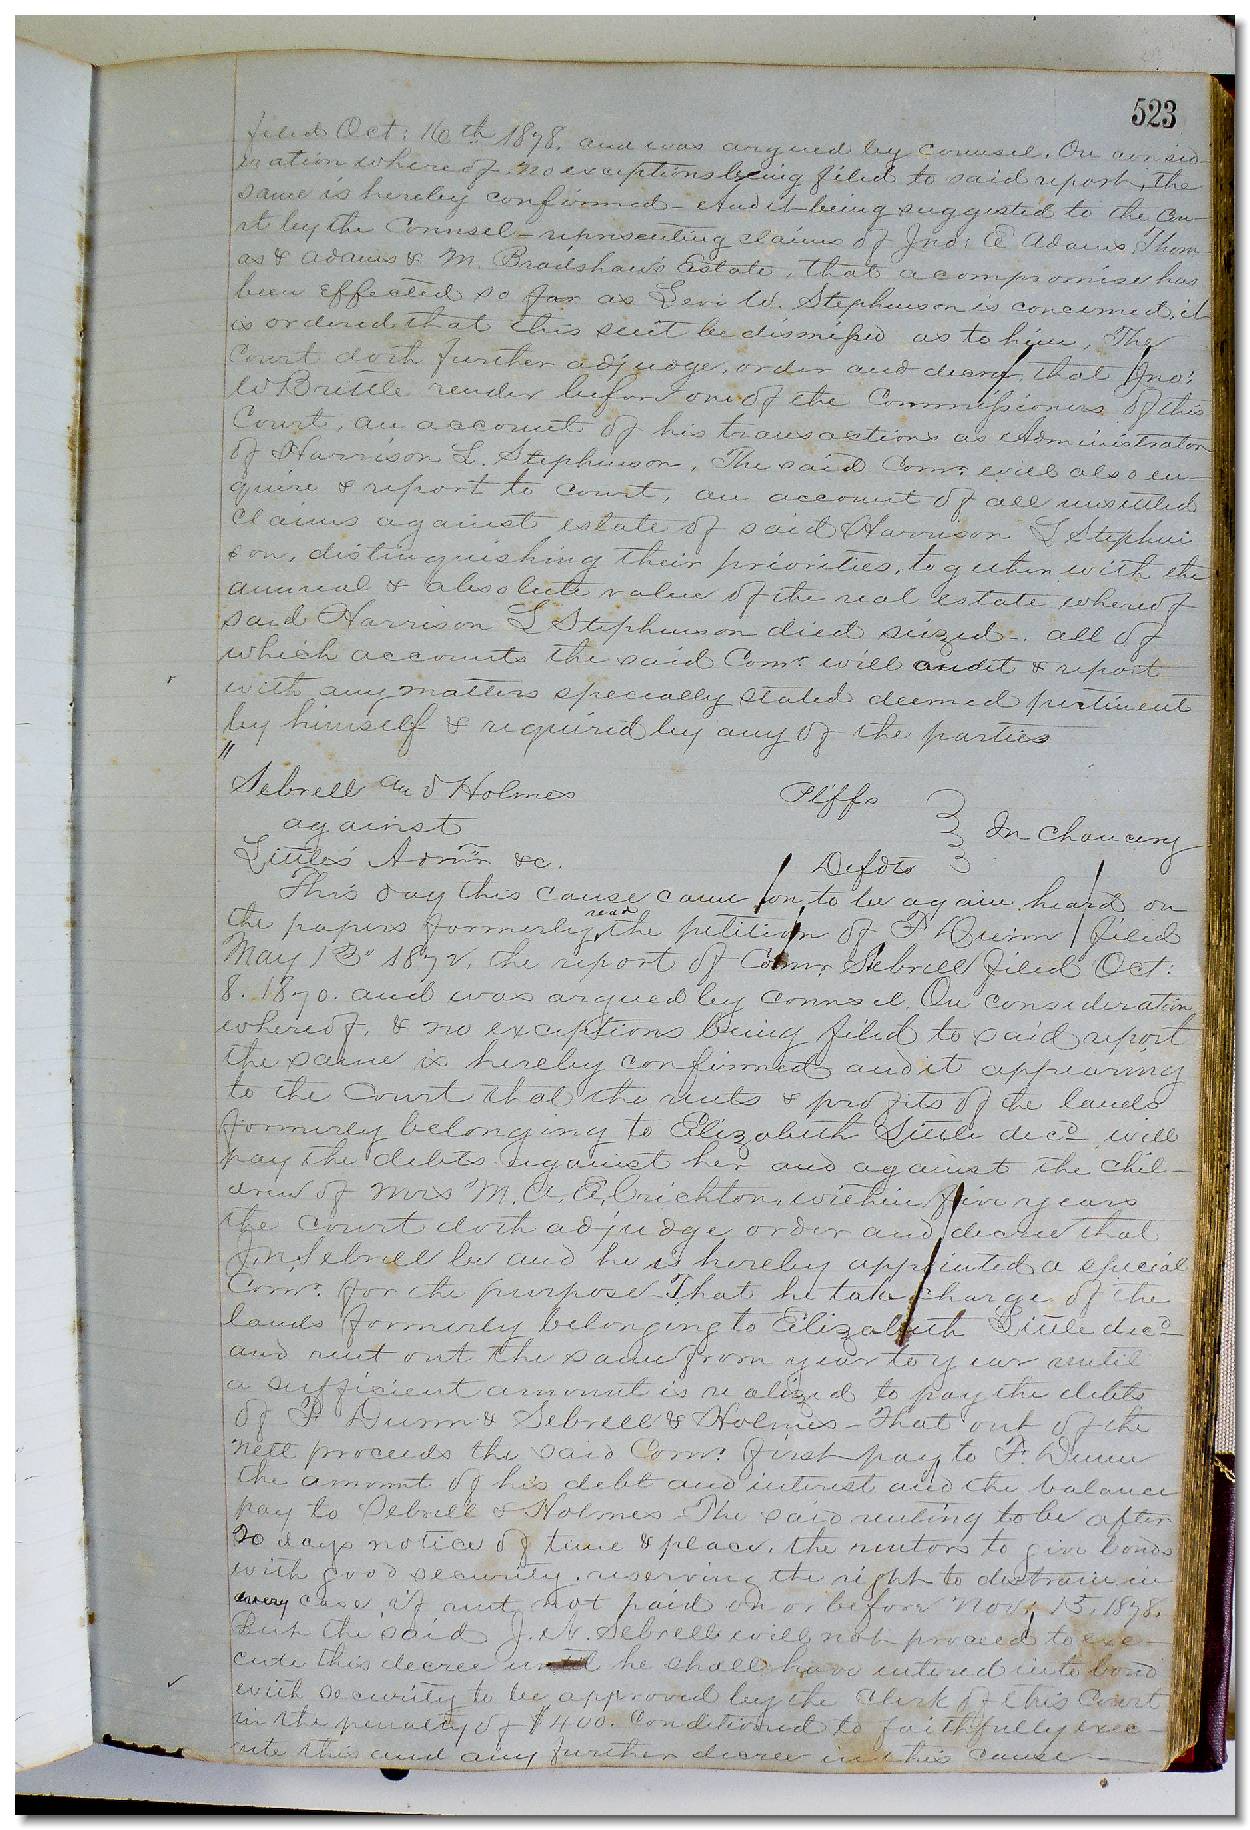 523
filed Oct: 16th 1878. and was argued by counsel. On consid-
eration whereof no exceptions being filed to said report, the
same is hereby confirmed - And it being suggested to the Cou-
rt by the Counsel - representing claims of Jno: E Adams Thom-
as & Adams & M. Bradshaw's Estate, that a compromise has
been effected so far as Levi W. Stephenson is concerned, it
is ordered that this suit be dismissed as to him, The
Court doth further adjudge, order and decree, that Jno:
W Brittle render before one of the Commissioners of this
Court, an account of his transactions as Administrator
of Harrison L. Stephenson, The said Comr. will also en-
quire & report to court, an account of all unsettled
claims against estate of said Harrison L Stephen
son, distinguishing their priorities, together with the
annual & absolute value of the real estate whereof
said Harrison L Stephenson died seized -. all of
which accounts the said Comr. will audit & report
with any matters specially stated deemed pertinent
by himself & required by any of the parties
"
Sebrell and Holmes Pliffs
against In Chancery
Little's Admr. &c. Defdts
This day this cause came on to be again heard on
the papers formerly read, the petition of F Dunn filed
May 13" 1872, the report of Comr. Sebrell filed Oct:
8. 1870. and was argued by counsel. On consideration
whereof, & no exceptions being filed to said report
the same is hereby confirmed and it appearing
to the Court that the rents & profits of the lands
formerly belonging to Elizabeth Little decd will
pay the debts against her and against the chil-
dren of Mrs M. A. E. Crichton, within five years
the Court doth adjudge order and decree that
J. N. Sebrell be and he is hereby appointed a special
Comr. for the purpose That he take charge of the
lands formerly belonging to Elizabeth Little decd
and rent out the same from year to year until
a sufficient amount is realized to pay the debts
of F. Dunn & Sebrell & Holmes - That out of the
nett proceeds the said Comr. first pay to F. Dunn
the amount of his debt and interest and the balance
pay to Sebrell & Holmes The said renting to be after
20 days notice of time & place, the rentors to give bonds
with good security, reserving the right to distrain in
every case, if rent not paid on or before Nov. 15, 1878.
But the said J. N. Sebrell will not proceed to exe-
cute this decree until he shall have entered into bond
with security to be approved by the Clerk of this Court
in the penalty of $400. Conditioned to faithfully exec-
ute this and any further decree in this cause